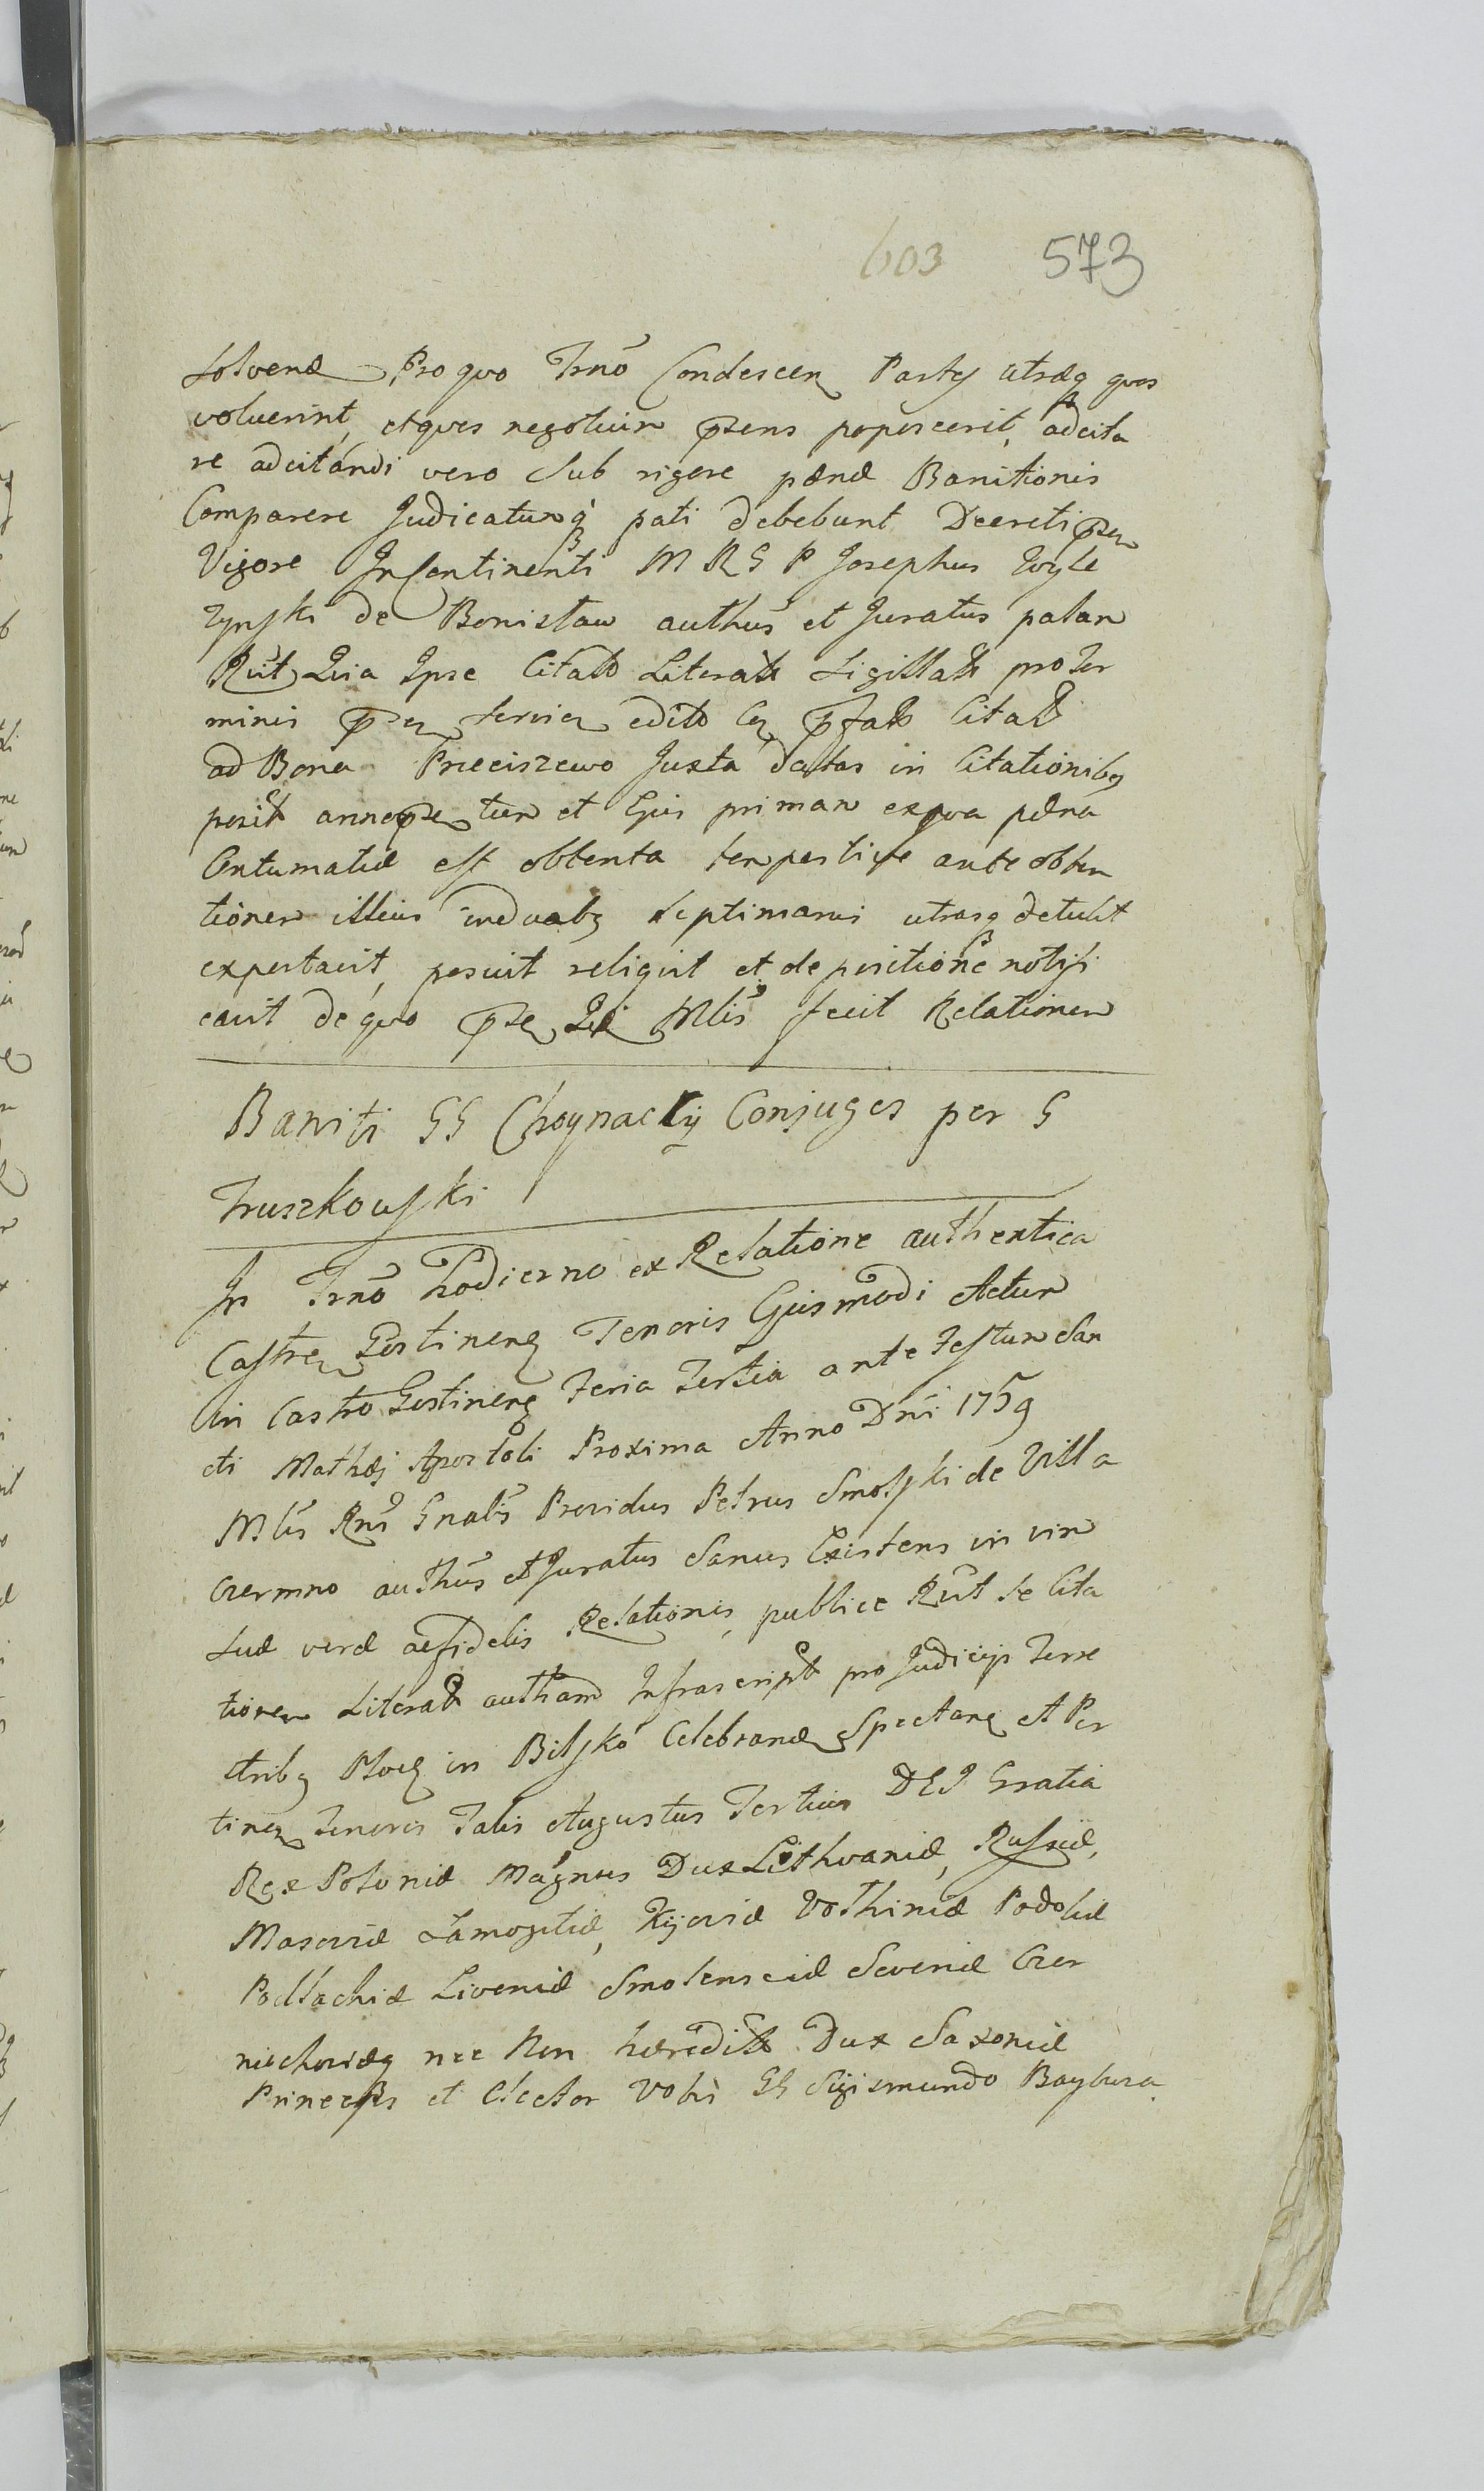 603 573
solvend Pro quo Trnō Condescen Partes utræq quos
voluerint, et quos negotium pzens poposcerit, adcita
re adcitandi vero sub rigore pænæ Banitionis
Comparere Judicatumq pati debebunt Decreti pzen
Vigore Incontinenti M R G P Josephus Wyle
zynski de Bonislaw authūs et Juratus palam
Rūt Quia Ipse Citatō Literatō Sigillatō pro Ter
minis pzen edito pfato Citatō
ad Bona Preciszewo Juxta datas in Citationibq
posit anno pze tum et Ejus primam ex qua pæna
Contumatiæ est obtenta tempestive ante obten
tionem illius in duabq septimanis utrasq detulit
expertavit, posuit reliquit et de positione notifi
cavit de quo pze Qui Mlīs fecit Relationem
Baniti GG Choynackij Conjuges per G
Truszkowski
In Trnō hodierno ex Relatione authentica
Castren Gostinenq Tenoris Ejusmodi Actum
in Castro Gostinenq Feria Tertia ante Festum San
cti Mathæj Apostoli Proxima Anno Dnī 1759
Mlīs Rnī Gnalīs Providus Petrus Smolski de Villa
Czermno authūs et Juratus Sanus Existens in vim
suæ veræ ac fidelis Relationis, publice Rūt se Cita
tionem Literat autham Infrascript pro Judicijs Terre
stribq Plocq in Bilsko Celebrand Spectanq et Per
tinen Tenoris Talis Augustus Tertius DEI Gratia
Rex Poloniæ Magnus Dux Lithvaniæ, Russiæ,
Masoviæ Samogitiæ, Kijoviæ Volhiniæ Podoliæ
Podlachiæ Livoniæ Smolensciæ Severiæ Czer
niechoviæq nec Non hæredit Dux Saxoniæ
Princeps et Elector Vobis GG Sigismundo Baybuza